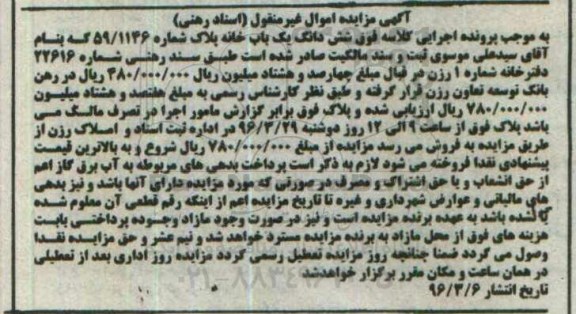 آگهی مزایده اموال غیرمنقول (اسناد رهنی)
به موجب پرونده اجرایی کلاسه فوق شش دانگ یک باب خانه پلاک شماره ۵۹/۱۱۴۶ که بنام
آقای سیدعلی موسوی ثبت و سند مالکیت صادر شده است طبق سند رهنی شماره ۲۲۶۱۶
دفترخانه شماره ۱ رزن در قبال مبلغ چهارصد و هشتاد میلیون ریال ۴۸۰/۰۰۰/۰۰۰ ریال در رهن
بانک توسعه تعاون رزن قرار گرفته و طبق نظر کارشناس رسمی به مبلغ هفتصد و هشتاد میلیون
۷۸۰/۰۰۰/۰۰۰ ریال ارزیابی شده و پلاک فوق برابر گزارش مامور اجرا در تصرف مالک می
باشد پلاک فوق از ساعت ۹ الی ۱۲ روز دوشنبه ۹۶/۳/۲۹ در اداره ثبت اسناد و املاک رزن از
طریق مزایده به فروش می رسد مزایده از مبلغ ۷۸۰/۰۰۰/۰۰۰ ریال شروع و به بالاترین قیمت
پیشنهادی نقدا فروخته می شود لازم به ذکر است پرداخت بدهی های مربوطه به آب برق گاز اعم
از حق انشعاب و یا حق اشتراک و مصرف در صورتی که مورد مزایده دارای آنها باشد و نیز بدهی
های مالیاتی و عوارض شهرداری و غیره تا تاریخ مزایده اعم از اینکه رقم قطعی آن معلوم شده
یا نشده باشد به عهده برنده مزایده است و نیز در صورت وجود مازاد وجوده پرداختی بابت
هزینه های فوق از محل مازاد به برنده مزایده مسترد خواهد شد و نیم عشر و حق مزایده نقدا
وصول می گردد ضمنا چنانچه روز مزایده تعطیل رسمی گردد مزایده روز اداری بعد از تعطیلی
در همان ساعت و مکان مقرر برگزار خواهدشد
تاریخ انتشار ۹۶/۳/۶